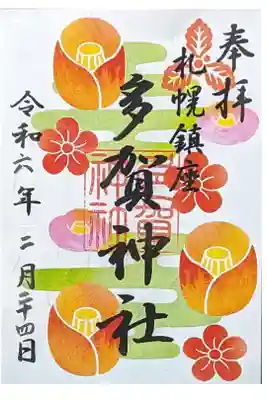 奉拝
札幌鎮座
多賀神社
多賀神社
令和六年 二月二十四日